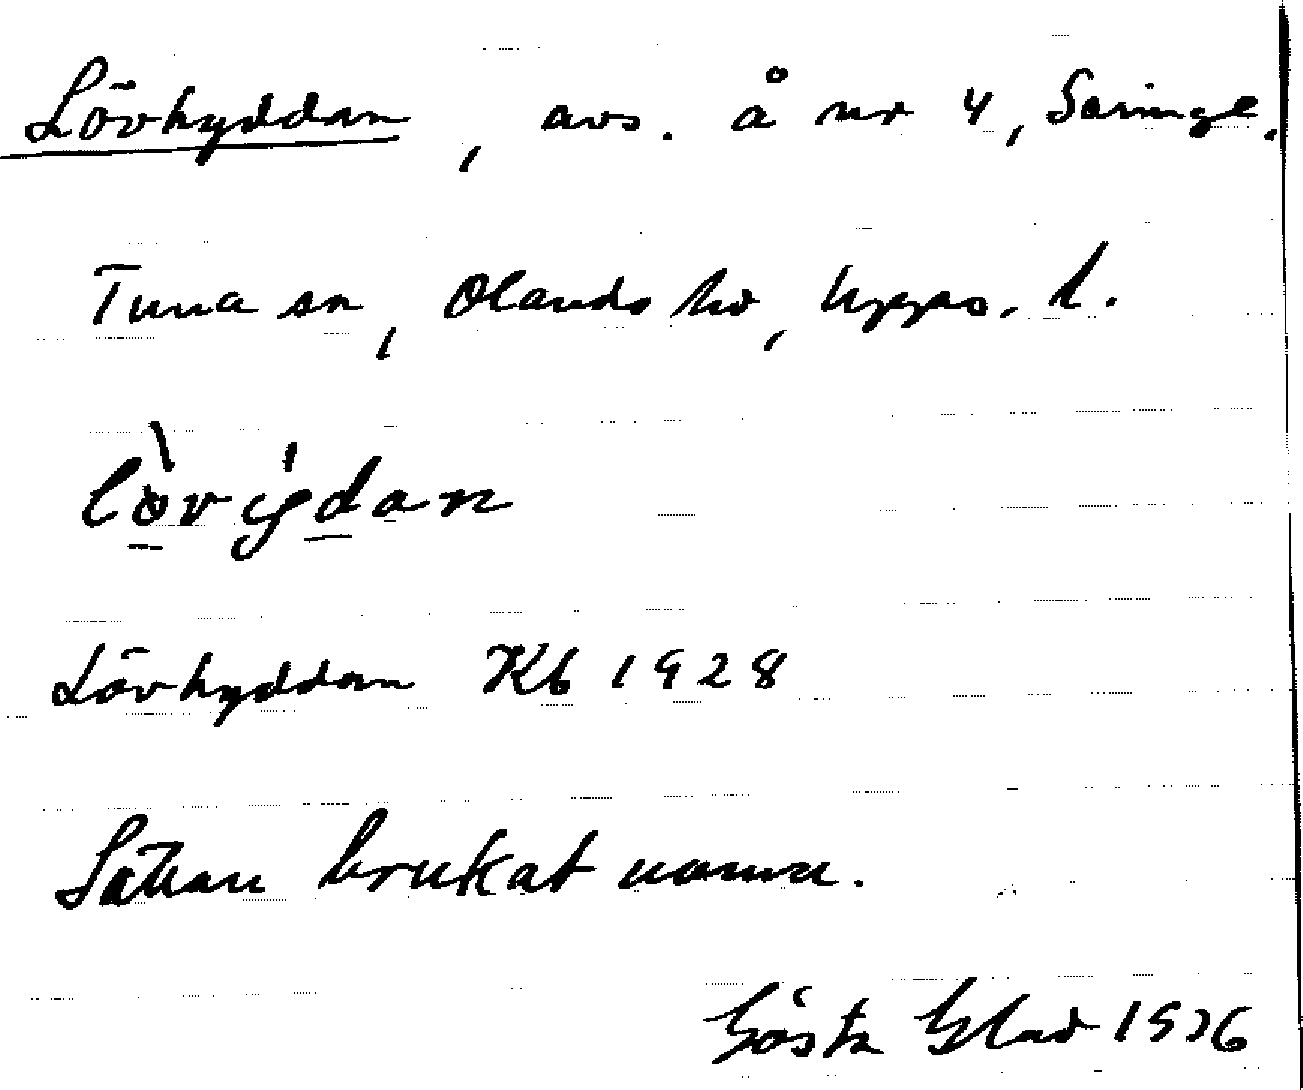 Lövhyddan, avs. å nr 4, Saringe.
Tuna sn, Olands hd, Upps. l.
lövýdan
Lövhyddan Kb 1928
Sällan brukat namn.
Gösta Blad 1936